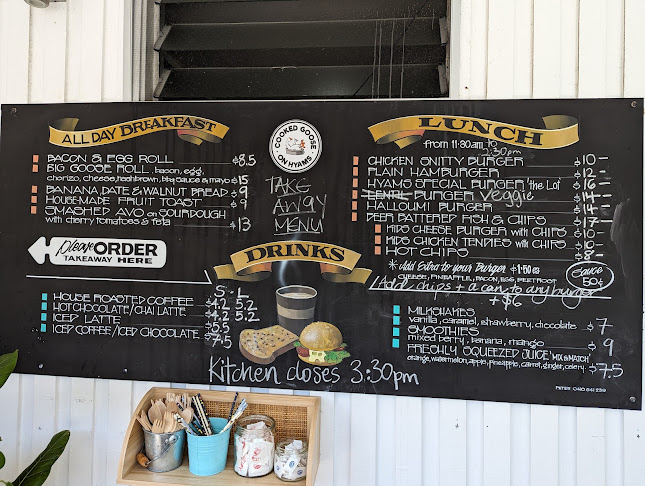 ALL DAY BREAKFAST
BACON & EGG ROLL $8.5
BIG GOOSE ROLL, bacon, egg,
chorizo, cheese, hashbrown, bbq sauce & mayo $15
BANANA, DATE & WALNUT BREAD $9
HOUSE-MADE FRUIT TOAST $9
SMASHED AVO ON SOURDOUGH
with cherry tomatoes & feta $13
Please ORDER
TAKEAWAY HERE
COOKED GOOSE
ON HYAMS
TAKE
AWAY
MENU
DRINKS
S - L
HOUSE ROASTED COFFEE $4.2 5.2
HOT CHOCOLATE/CHAI LATTE $4.2 5.2
ICED LATTE $5.5
ICED COFFEE/ICED CHOCOLATE $7.5
Kitchen closes 3:30pm
LUNCH
from 11:30am to
2:30pm
CHICKEN SNITTY BURGER $10-
PLAIN HAMBURGER $12-
HYAMS SPECIAL BURGER 'the Lot' $16-
LENTIL BURGER Veggie $14-
HALLOUMI BURGER $14-
BEER BATTERED FISH & CHIPS $17-
KIDS CHEESE BURGER with CHIPS $10-
KIDS CHICKEN TENDIES with CHIPS $10-
HOT CHIPS $8-
* Add Extra to your Burger +$1.50 ea
CHEESE, PINEAPPLE, BACON, EGG, BEETROOT
Sauce
50¢
Add chips + a can to any burger
+ $6
MILKSHAKES
vanilla, caramel, strawberry, chocolate $7
SMOOTHIES
mixed berry, banana, mango $9
FRESHLY SQUEEZED JUICE 'MIX & MATCH'
orange, watermelon, apple, pineapple, carrot, ginger, celery $7.5